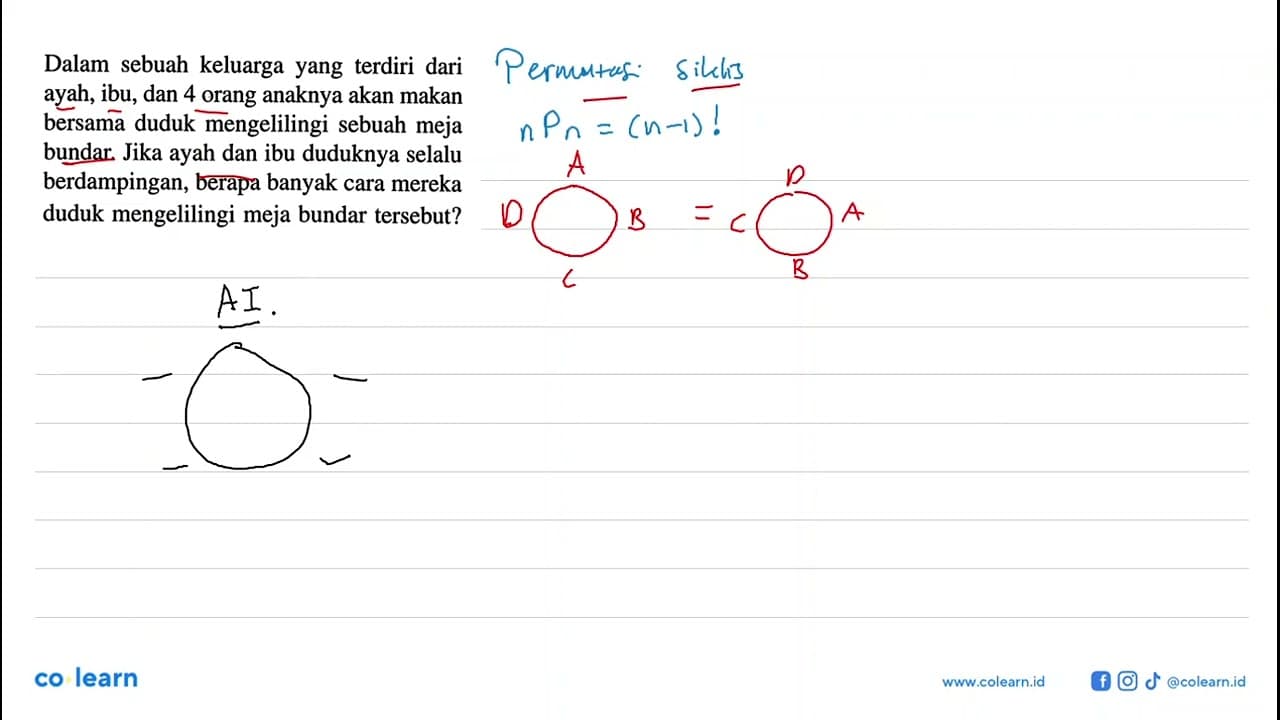 Dalam sebuah keluarga yang terdiri dari
ayah, ibu, dan 4 orang anaknya akan makan
bersama duduk mengelilingi sebuah meja
bundar. Jika ayah dan ibu duduknya selalu
berdampingan, berapa banyak cara mereka
duduk mengelilingi meja bundar tersebut?
Permutasi siklis
nPn = (n-1)!
A
D B
C
=
D
C A
B
AI.
co learn
www.colearn.id
@colearn.id